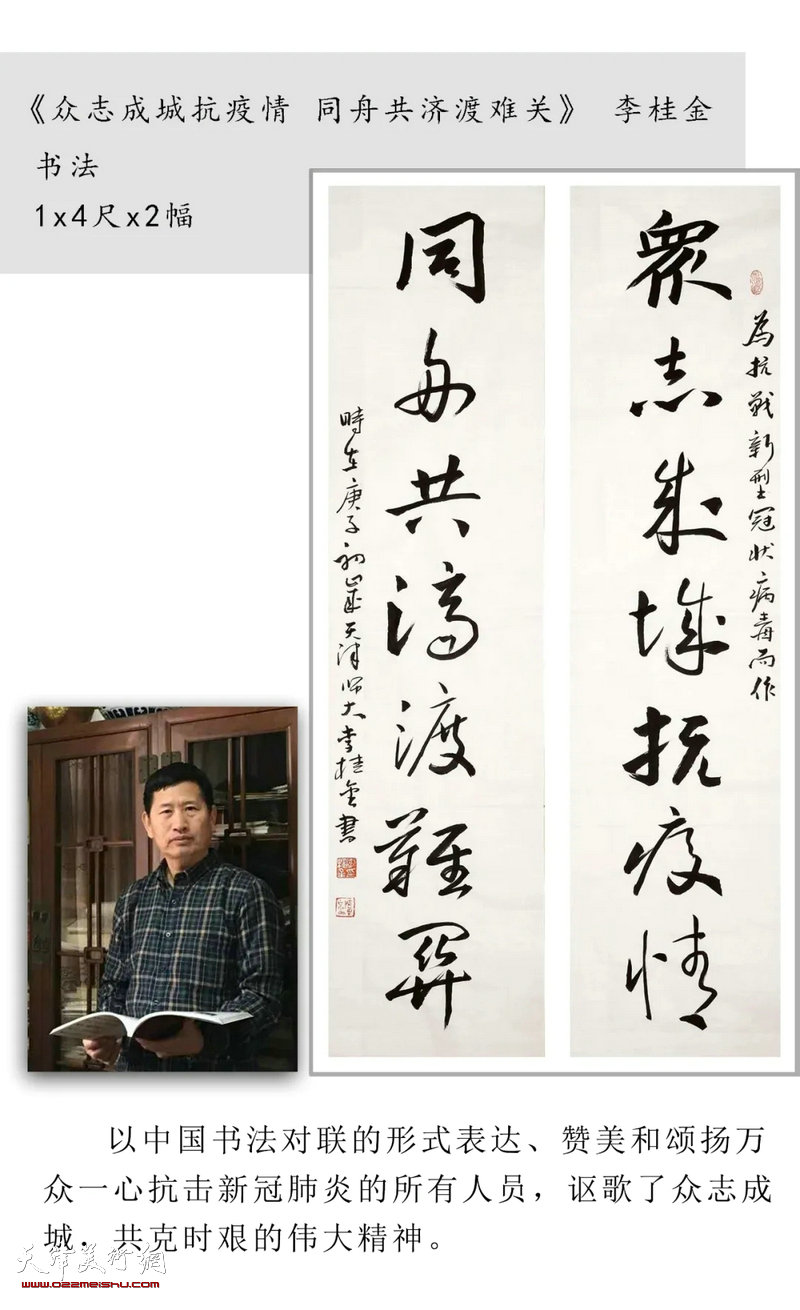 《众志成城抗疫情 同舟共济渡难关》 李桂金
书法
1x4尺x2幅
為抗战新型冠状病毒而作
眾志成城抗疫情
同舟共濟渡難関
時在庚子初歲天津师大李桂金書
以中国书法对联的形式表达、赞美和颂扬万
众一心抗击新冠肺炎的所有人员，讴歌了众志成
城，共克时艰的伟大精神。
天津美術網
www.022meishu.com